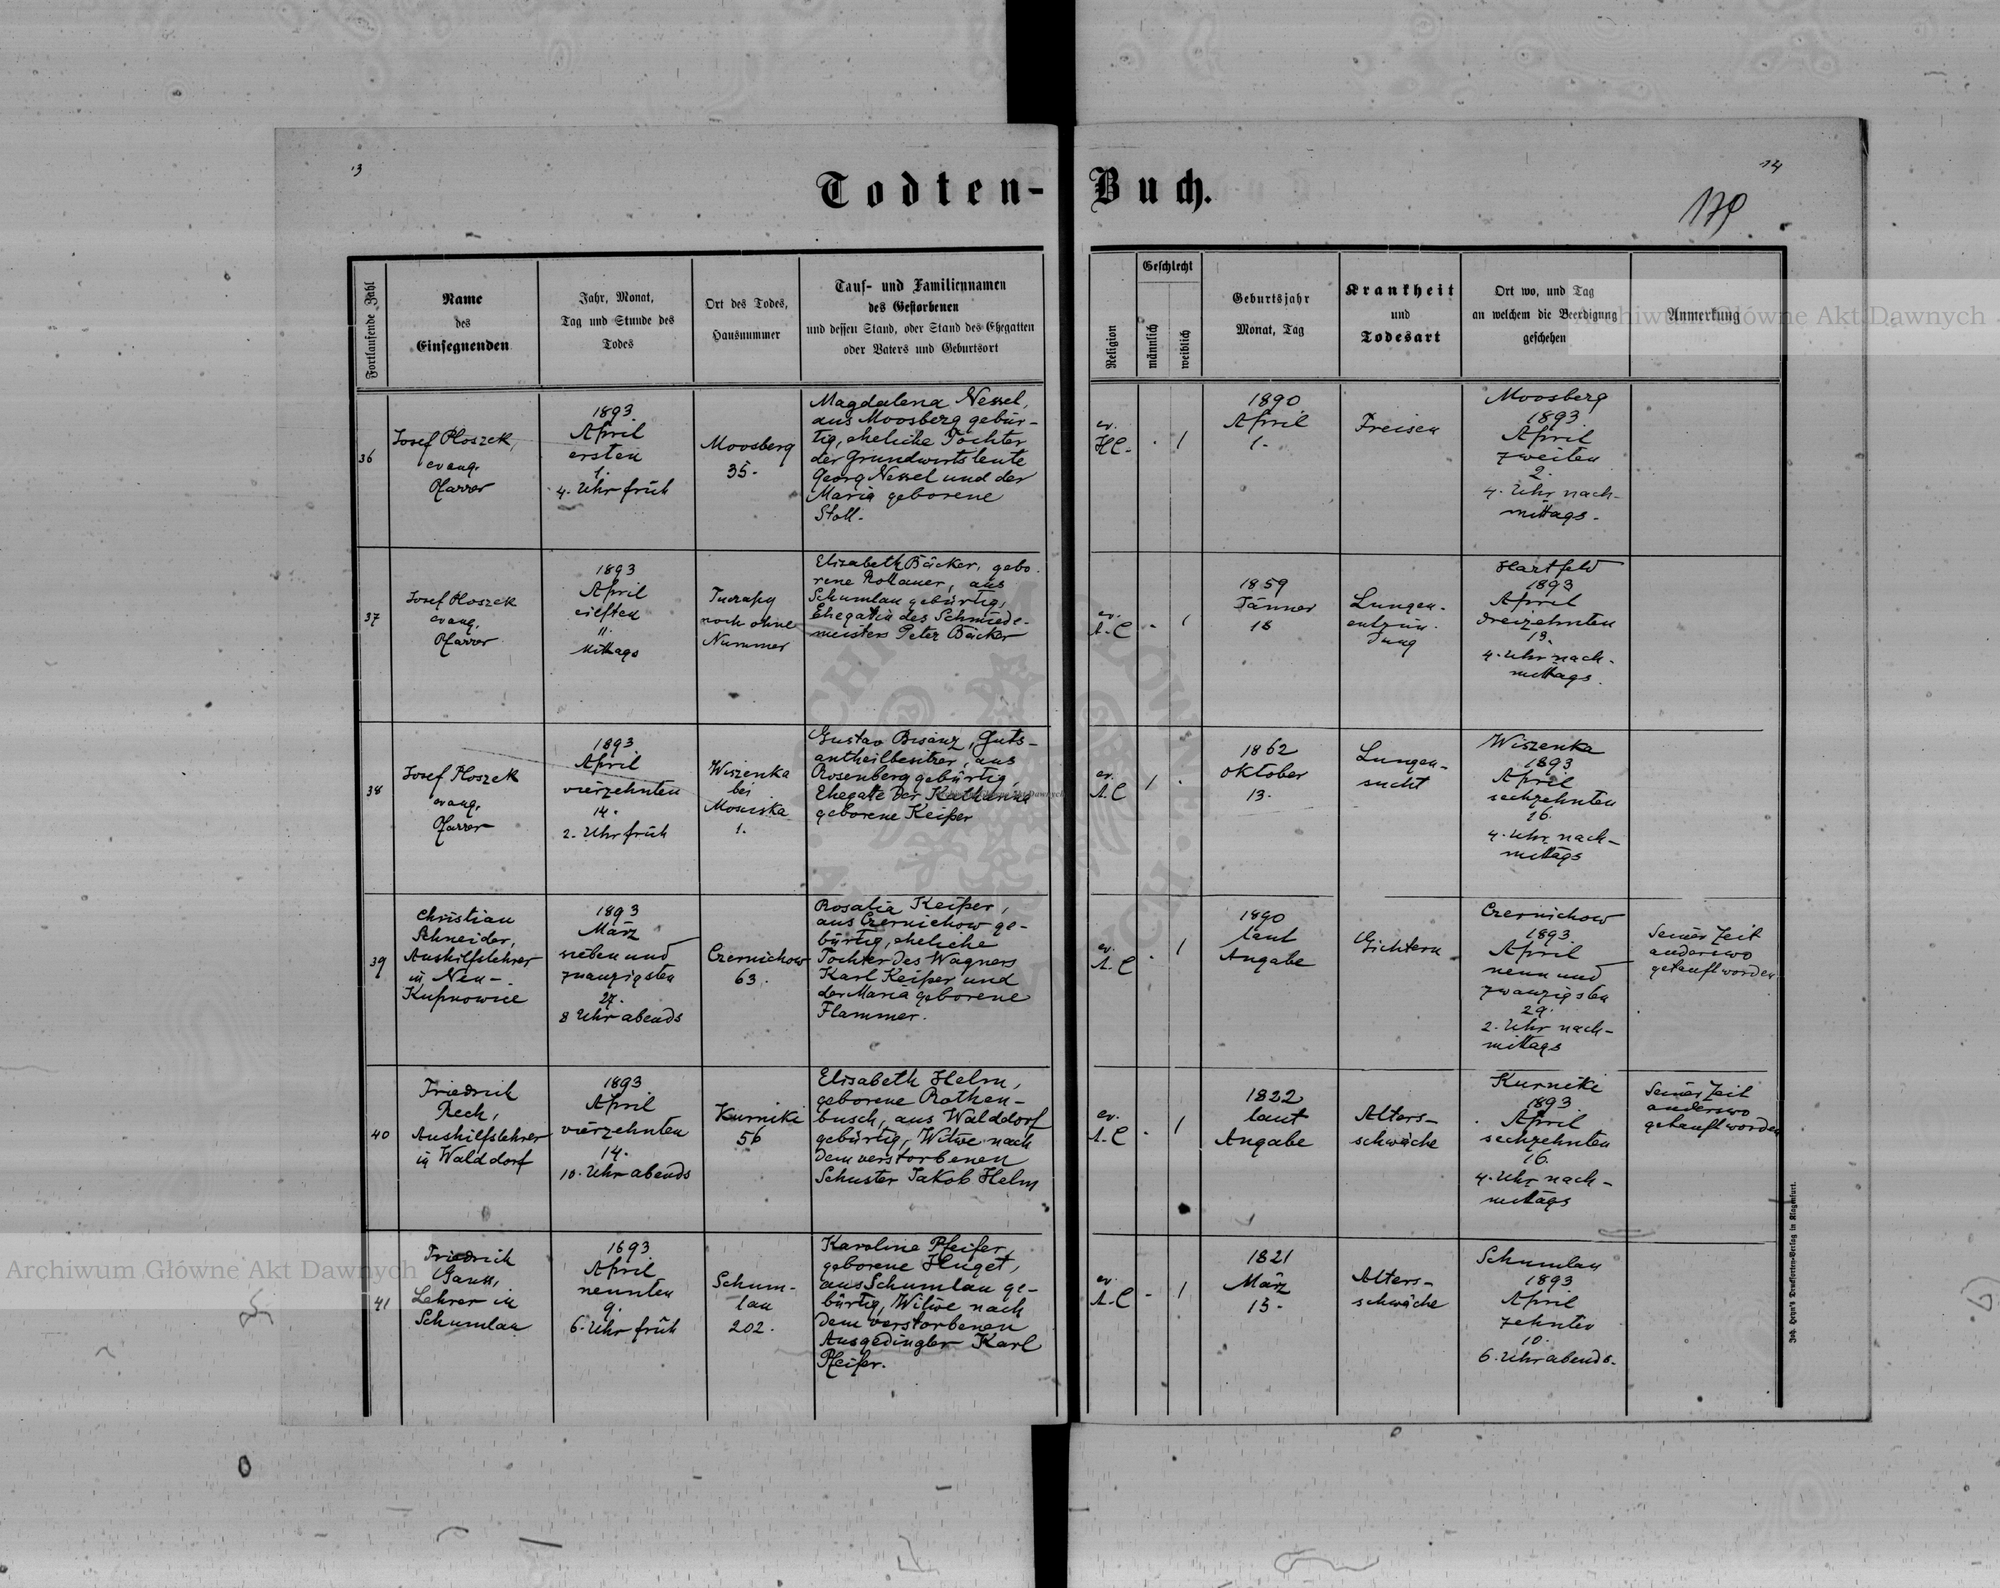 13
14
Todten-Buch.
179
Fortlaufende Zahl
Name
des
Einsegnenden
Jahr, Monat,
Tag und Stunde des
Todes
Ort des Todes,
Hausnummer
Tauf- und Familiennamen
des Gestorbenen
und dessen Stand, oder Stand des Ehegatten
oder Vaters und Geburtsort
Religion
Geschlecht
männlich
weiblich
Geburtsjahr
Monat, Tag
Krankheit
und
Todesart
Ort wo, und Tag
an welchem die Beerdigung
geschehen
Anmerkung
36
Josef Ploszek,
evang.
Pfarrer
1893
April
ersten
1.
4. Uhr früh
Moosberg
35.
Magdalena Nessel,
aus Moosberg gebür-
tig, eheliche Tochter
der Grundwirtsleute
Georg Nessel und der
Maria geborene
Stoll.
ev.
H.C.
1
1890
April
1.
Freisen
Moosberg
1893
April
zweiten
2.
4. Uhr nach-
mittags.
37
Josef Ploszek
evang.
Pfarrer
1893
April
eilften
11.
Mittags
noch ohne
Nummer
Elisabeth Bäcker, gebo-
rene Rollauer, aus
Schumlau gebürtig,
Ehegattin des Schmiede-
meisters Peter Bäcker
ev.
A.C
-
1
1859
Jänner
18
Lungen-
entzün-
dung
Hartfeld
1893
April
dreizehnten
13.
4. Uhr nach-
mittags.
38
Josef Ploszek
evang.
Pfarrer
1893
April
vierzehnten
14.
2. Uhr früh
Wiszenka
bei
Mosciska
1.
Gustav Bisanz, Guts-
antheilbesitzer, aus
Rosenberg gebürtig,
Ehegatte der Katharina
geborene Keiper
ev.
A.C
1
1862
Oktober
13.
Lungen-
sucht
Wiszenka
1893
April
sechzehnten
16.
4. Uhr nach-
mittags
39
Christian
Schneider,
Aushilfslehrer
in Neu-
Kupnowice
1893
März
sieben und
zwanzigsten
27.
8 Uhr abends
Czernichow
63.
Rosalia Keiper,
aus Czernichow ge-
bürtig, eheliche
Tochter des Wagners
Karl Keiper und
der Maria geborene
Flammer.
ev.
A.C
1
1890
laut
Angabe
Gichtern
Czernichow
1893
April
neun und
zwanzigsten
29.
2. Uhr nach-
mittags
Seiner Zeit
anderswo
getauft worden
40
Friedrich
Rech,
Aushilfslehrer
in Walddorf
1893
April
vierzehnten
14.
10. Uhr abends
Kurniki
56
Elisabeth Helm,
geborene Rothen-
busch, aus Walddorf
gebürtig, Witwe nach
dem verstorbenen
Schuster Jakob Helm
ev.
A.C
-
1
1822
laut
Angabe
Alters-
schwäche
Kurniki
1893
April
sechzehnten
16.
4. Uhr nach-
mittags
Seiner Zeit
anderswo
getauft worden
41
Friedrich
Gauss,
Lehrer in
Schumlau
1693
April
neunten
9.
6. Uhr früh
Schum-
lau
202.
Karoline Pfeifer,
geborene Huget,
aus Schumlau ge-
bürtig, Witwe nach
dem verstorbenen
Ausgedingler Karl
Pfeifer.
ev.
A.C
-
1
1821
März
15.
Alters-
schwäche
Schumlau
1893
April
zehnten
10.
6. Uhr abends.
Joh. Heyn's Drucksorten-Verlag in Klagenfurt.
Archiwum Główne Akt Dawnych
Archiwum Główne Akt Dawnych